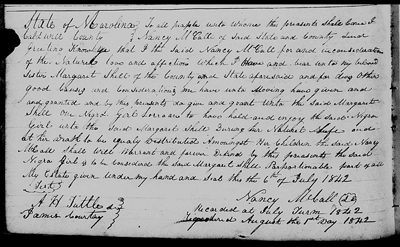 State of N Carolina } To all people unto whome the presents shall Come I
Caldwell County } Nancy McCall of Said State and County Send
Greeting Knowledge that I the Said Nancy McCall for and in consideration
of the Natural love and affection Which I Have and bear unto my beloved
Sister Margaret Shell of the County and State aforesaid and for divers other
good Causes and Considerations me here unto Moving have given and
and granted and by this presents do give and grant Unto the Said Margaret
Shell One Negro Girl to have hold and enjoy the said Negro
Girl unto the Said Margaret Shell During her Natural Life and
at her Death to be equaly Distributed Amongst her Children the Said Nancy
McCall Shall Well Warrant and forever Defend by this presents the Said
Negro Girl is to be Considered the Said Margaret Shells part of all
My Estate given under my hand and Seal this the 6th of July 1842
(Test)
Nancy McCall
A H Tuttle
James
Recorded at July Term 1842
Registered August the 1st Day 1842